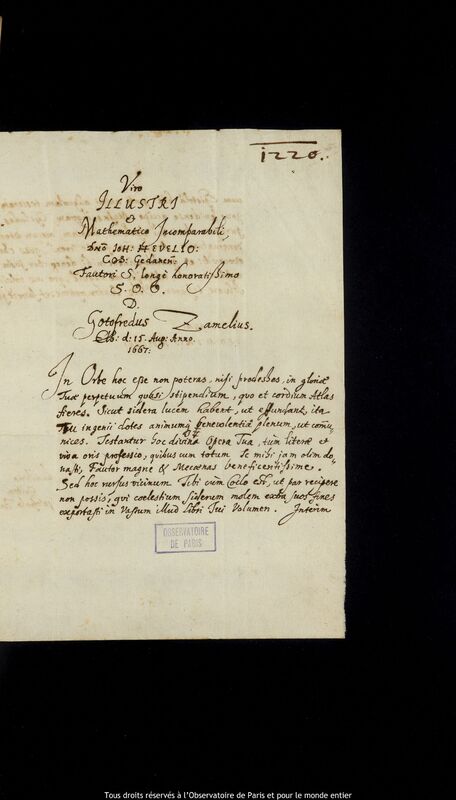 1220.
Viro
ILLUSTRI
&
Mathematico Incomparabili,
Dno JOH: HEVELIO:
COS: Gedanen:
Fautori S. longè honoratissimo
S. O. O.
D.
Gotofredus Zamelius.
Elb: d: 15. Aug: Anno.
1667.
In Orbe hoc esse non poteras, nisi prodesses, in gloriæ
Tuæ perpetuum quasi stipendium, quo et cordium Atlas
fieres. Sicut sidera lucem habent, ut effundant, ita
Tu ingenii dotes animumq benevolentiæ plenum, ut comu-
nices. Testantur hoc divina Opera Tua, tùm literæ et
viva oris professio, quibus cum totum Te mihi jam olim do-
nasti, Fautor magne & Mecœnas beneficentissime.
Sed hoc rursus vicinum Tibi cùm Cœlo est, ut par recipere
non possis, qui cœlestium siderum molem extra suos fines
exportasti in Vastum illud Libri Tui Volumen. Interim
OBSERVATOIRE
DE PARIS
Tous droits réservés à l'Observatoire de Paris et pour le monde entier